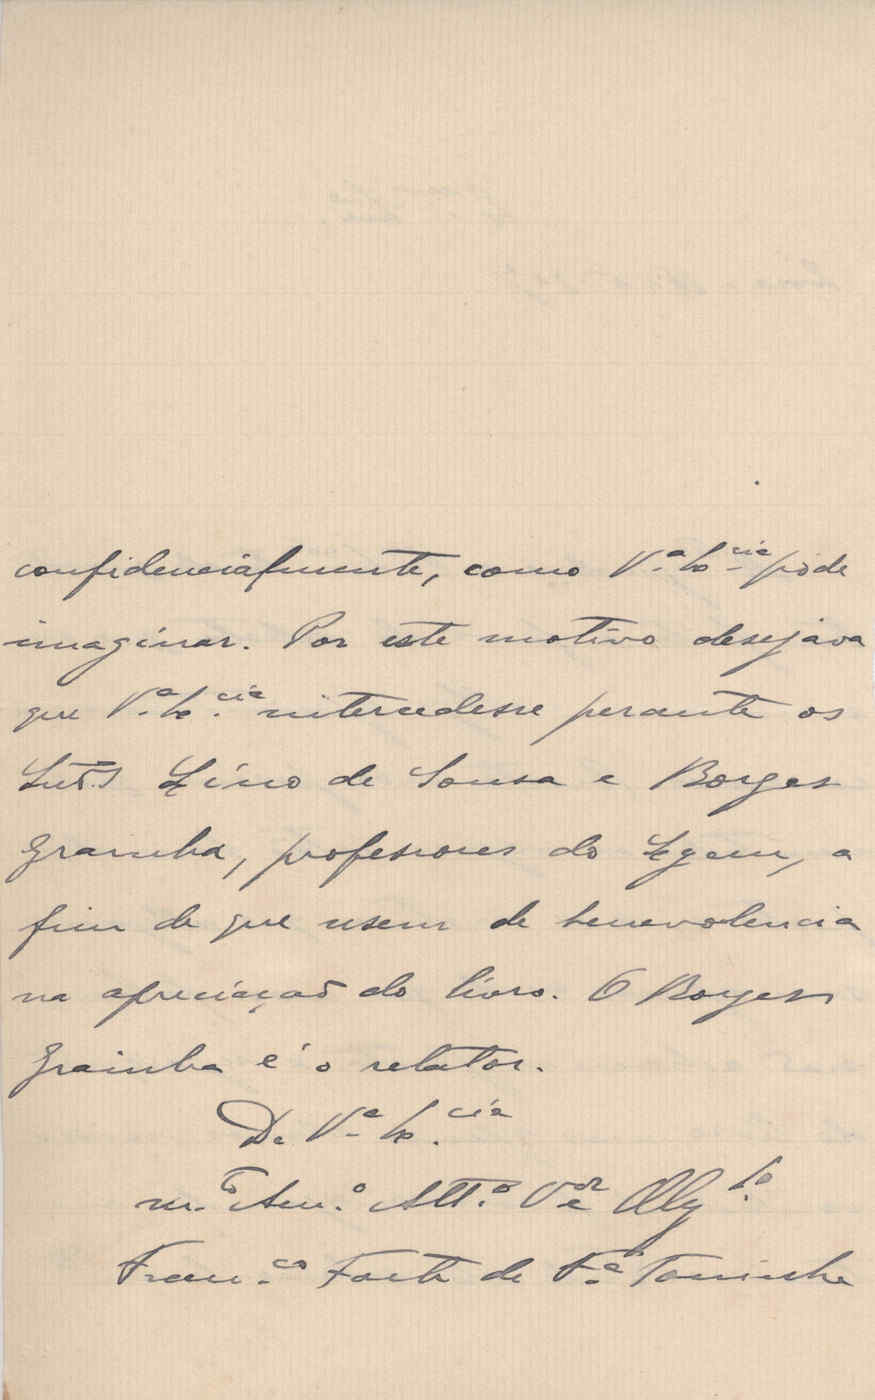 confidencialmente, como V.ª Ex.cia póde
imaginar. Por este motivo desejava
que V.ª Ex.cia intercedesse perante os
Lino de Sousa e Borges
Grainha, professores do Lyceu, a
fim de que usem de benevolencia
na apreciação do livro. O Borges
Grainha é o relator.
De V.ª Ex.cia
m.to Am.º Att.º V.or e Obg.
Fran.co Forte de F.ª Torrinha